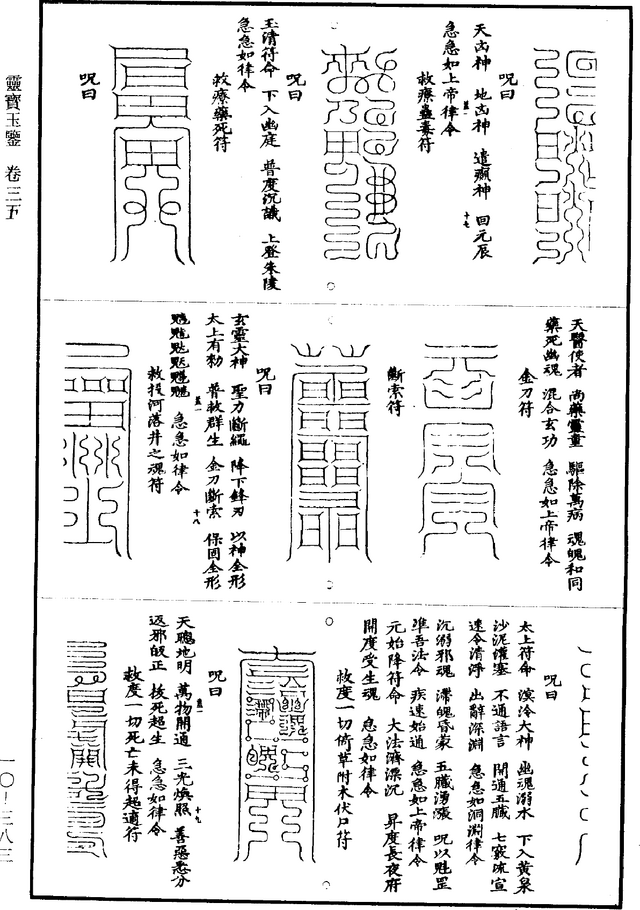 呪曰
天㐫神　地㐫神　遣瘟神　回元辰
急急如上帝律令
救療蠱毒符
呪曰
玉清符命　下入幽庭　普度沉識　上登朱陵
急急如律令
救療藥死符
呪曰
天醫使者　尚藥靈童　驅除萬病　魂魄和同
藥死幽魂　混合玄功　急急如上帝律令
金刀符
斷索符
呪曰
玄靈大神　聖力斷繩　降下鋒刃　以神全形
太上有勑　普救群生　金刀斷索　保固全形
急急如律令
救投河落井之魂符
呪曰
太上符命　溟泠大神　幽魂溺水　下入黄泉
沙泥壅塞　不通語言　開通五臟　七竅疏宣
速令清淨　出辭深淵　急急如洞淵律令
沉溺邪魂　滯魄昏蒙　五臟湧漲　呪以魁罡
準吾法令　疾速始通　急急如上帝律令
元始降符命　大法濟漂沉　昇度長夜府
開度受生魂　急急如律令
救度一切倚草附木伏尸符
呪曰
天聰地明　萬物開通　三光煥照　善惡悉分
返邪皈正　拔死超生　急急如律令
救度一切死亡未得超適符
靈寶玉鑒　卷三五
一〇—三八三
十七
十八
十九